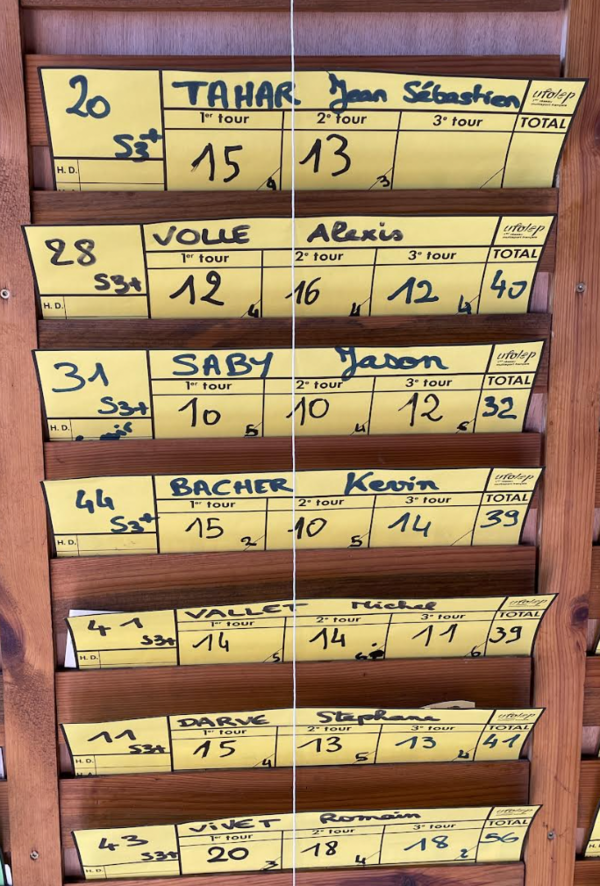 20 TAHAR Jean Sébastien ufolep
1er tour 2e tour 3e tour TOTAL
S3+ 15 4 13 3
H. D.
28 VOLLE Alexis ufolep
1er tour 2e tour 3e tour TOTAL
S3+ 12 4 16 4 12 4 40
H. D.
31 SABY Jason ufolep
1er tour 2e tour 3e tour TOTAL
S3+ 10 5 10 4 12 6 32
H. D.
44 BACHER Kevin ufolep
1er tour 2e tour 3e tour TOTAL
S3+ 15 2 10 5 14 39
H. D.
41 VALLET Michel ufolep
1er tour 2e tour 3e tour TOTAL
S3+ 14 5 14 11 6 39
H. D.
11 DARVE Stephane ufolep
1er tour 2e tour 3e tour TOTAL
S3+ 15 4 13 5 13 4 41
H. D.
43 VIVET Romain ufolep
1er tour 2e tour 3e tour TOTAL
S3+ 20 3 18 4 18 2 56
H. D.